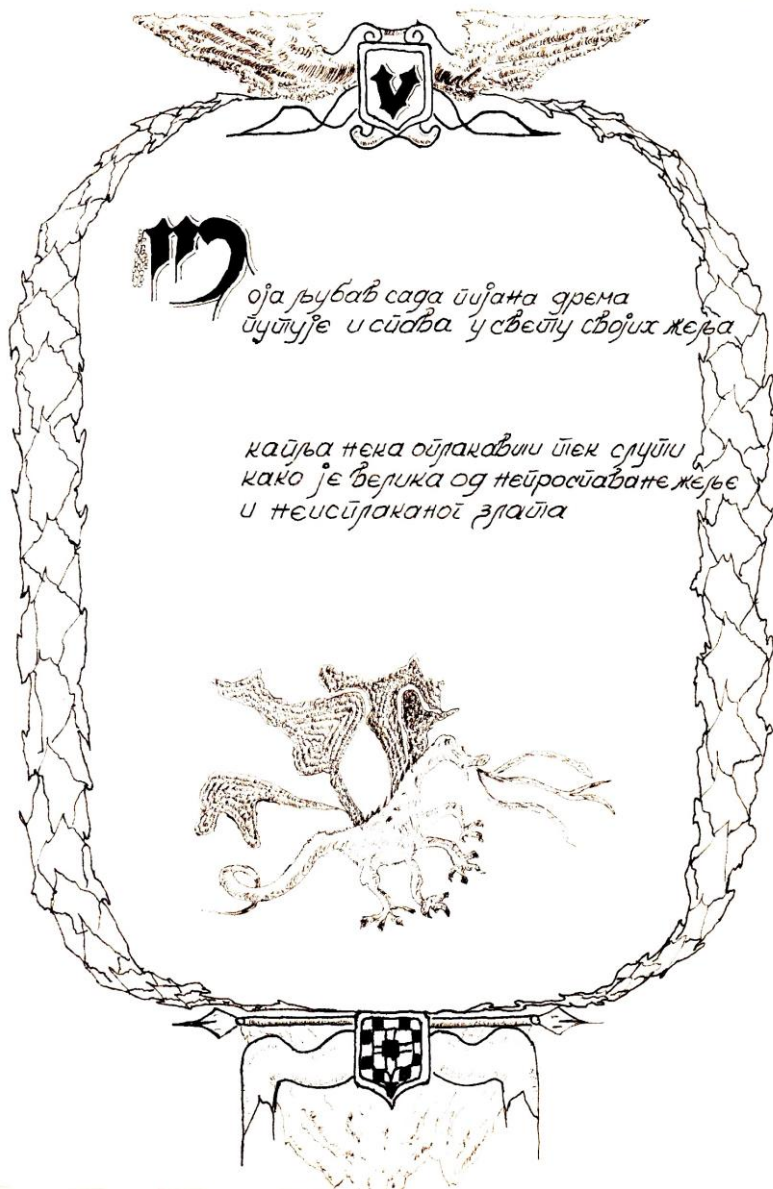 V
Моја љубав сада пијана дрема
путује и спава у свету својих жеља
капља нека оплакавши тек слути
како је велика од непроспаване жеље
и неисплаканог злата